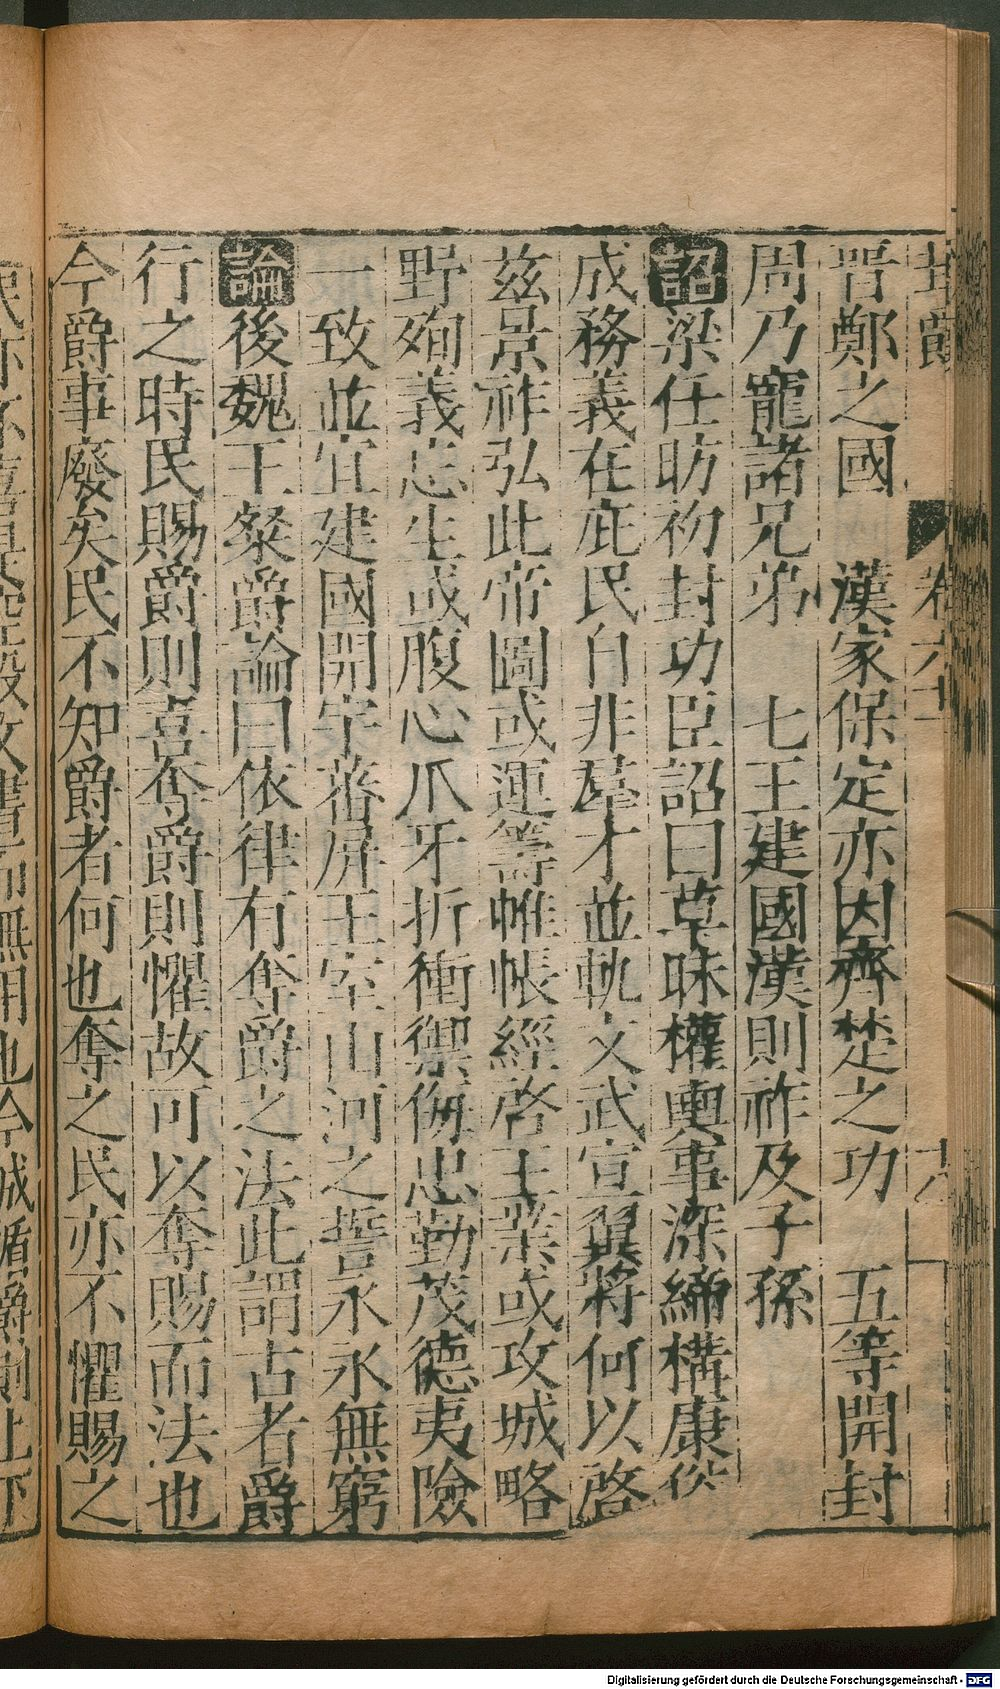 晋鄭之國　漢家保定亦因齊楚之功　五等開封
周乃寵諸兄弟　七王建國漢則祚及子孫
詔梁任昉初封功臣詔曰草昧權輿事深締構康俟
成務義在庇民自非羣才並軌文武宣翼將何以啓
茲景祚弘此帝圖或運籌帷帳經啓王業或攻城略
野殉義忘生或腹心爪牙折衝禦侮忠勤茂德夷險
一致並宜建國開宇蕃屏王室山河之誓永永無窮
論後魏王粲爵論曰依律有奪爵之法此謂古者爵
行之時民賜爵則喜奪爵則懼故可以奪賜而法也
今爵事廢矣民不知爵者何也奪之民亦不懼賜之
卷六
Digitalisierung gefördert durch die Deutsche Forschungsgemeinschaft - DFG